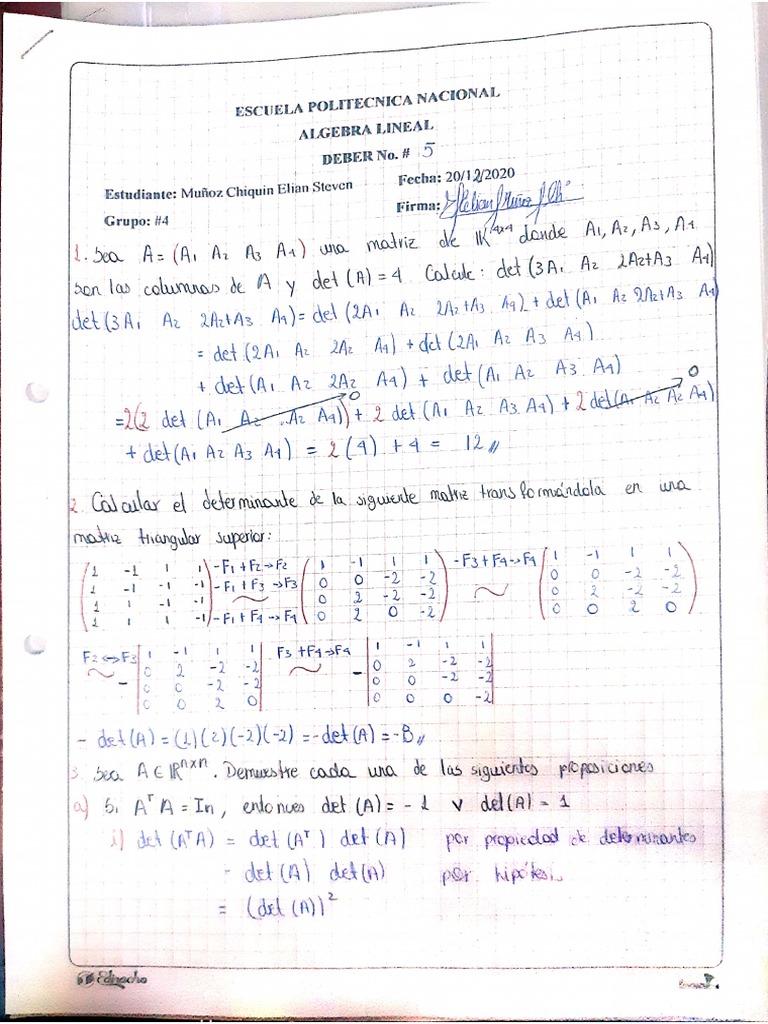 ESCUELA POLITECNICA NACIONAL
ALGEBRA LINEAL
DEBER No. # 5
Estudiante: Muñoz Chiquin Elian Steven Fecha: 20/12/2020
Grupo: #4 Firma:
1. Sea A = (A1 A2 A3 A4) una matriz de K^4x4 donde A1, A2, A3, A4
son las columnas de A y det (A) = 4 Calcule: det (3A1 A2 2A2+A3 A4)
det (3A1 A2 2A2+A3 A4) = det (2A1 A2 2A2+A3 A4) + det (A1 A2 2A2+A3 A4)
= det (2A1 A2 2A2 A4) + det (2A1 A2 A3 A4)
+ det (A1 A2 2A2 A4) + det (A1 A2 A3 A4)
=2(2 det (A1 A2 A2 A4)) + 2 det (A1 A2 A3 A4) + 2 det(A1 A2 A2 A4)
0 0
+ det(A1 A2 A3 A4) = 2(4) + 4 = 12 //
2. Calcular el determinante de la siguiente matriz transformándola en una
matriz triangular superior:
1 -1 1 1 -F1+F2→F2 1 -1 1 1 -F3+F4→F4 1 -1 1 1
1 -1 -1 -1 -F1+F3→F3 0 0 -2 -2 ~ 0 0 -2 -2
1 1 -1 -1 ~ 0 2 -2 -2 0 2 -2 -2
1 1 1 -1 -F1+F4→F4 0 2 0 -2 0 0 2 0
F2↔F3 1 -1 1 1 F3+F4→F4 1 -1 1 1
~ 0 2 -2 -2 ~ 0 2 -2 -2
- 0 0 -2 -2 - 0 0 -2 -2
0 0 2 0 0 0 0 -2
- det(A) = (1)(2)(-2)(-2) = -det(A) = -8 //
3. Sea A ∈ R^nxn. Demuestre cada una de las siguientes proposiciones
a) Si A^T A = In, entonces det (A) = -1 v det(A) = 1
i) det (A^T A) = det (A^T) det (A) por propiedad de determinantes
= det (A) det(A) por hipótesis
= (det (A))^2